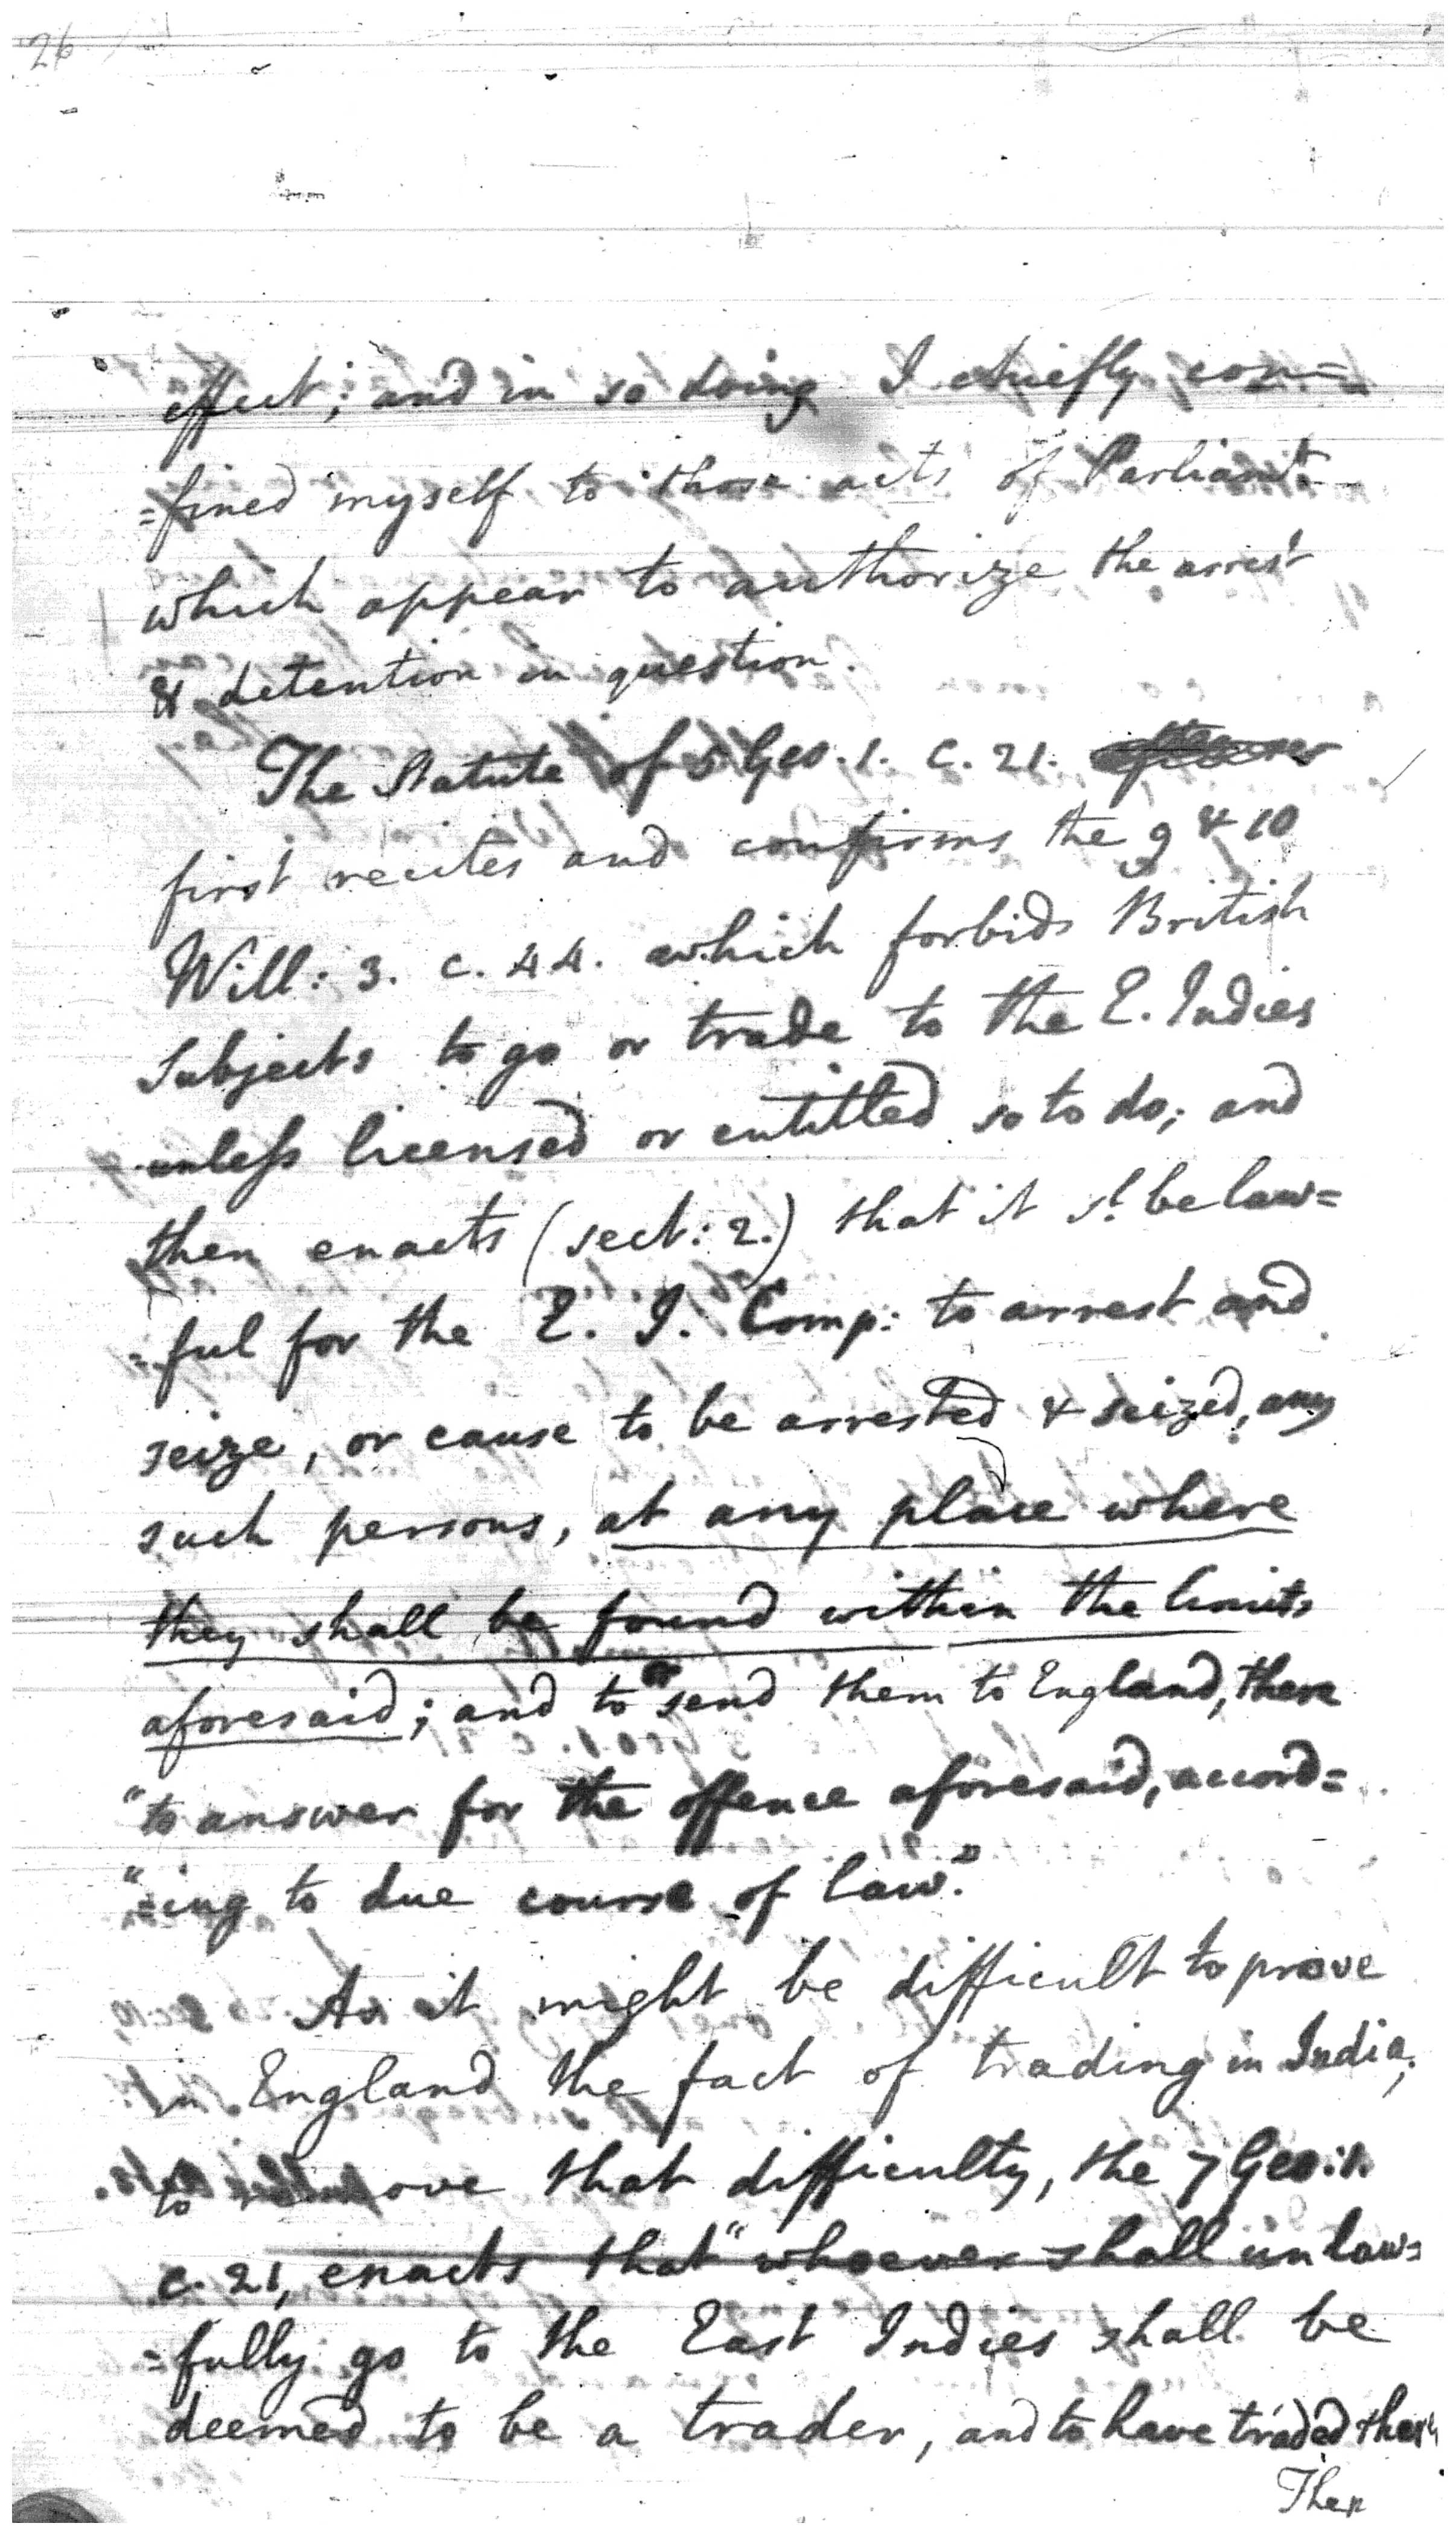 26
effect; and in so doing I chiefly con=
=fined myself to those acts of Parliamt.
which appear to authorize the arrest
& detention in question.
The Statute of 5 Geo. 1. c. 21.
first recites and confirms the 9 & 10
Will: 3. c. 44. which forbids British
Subjects to go or trade to the E. Indies
unless licensed or entitled so to do; and
then enacts (sect: 2.) that it sd. be law=
=ful for the E. I. Comp: to arrest and
seize, or cause to be arrested & seized, any
such persons, at any place where
they shall be found within the limits
aforesaid; and to send them to England, there
"to answer for the offence aforesaid, accord=
"=ing to due course of law."
As it might be difficult to prove
in England the fact of trading in India,
to remove that difficulty, the 7 Geo: 1.
c. 21, enacts that "whoever shall unlaw=
=fully go to the East Indies shall be
deemed to be a trader, and to have traded there
The